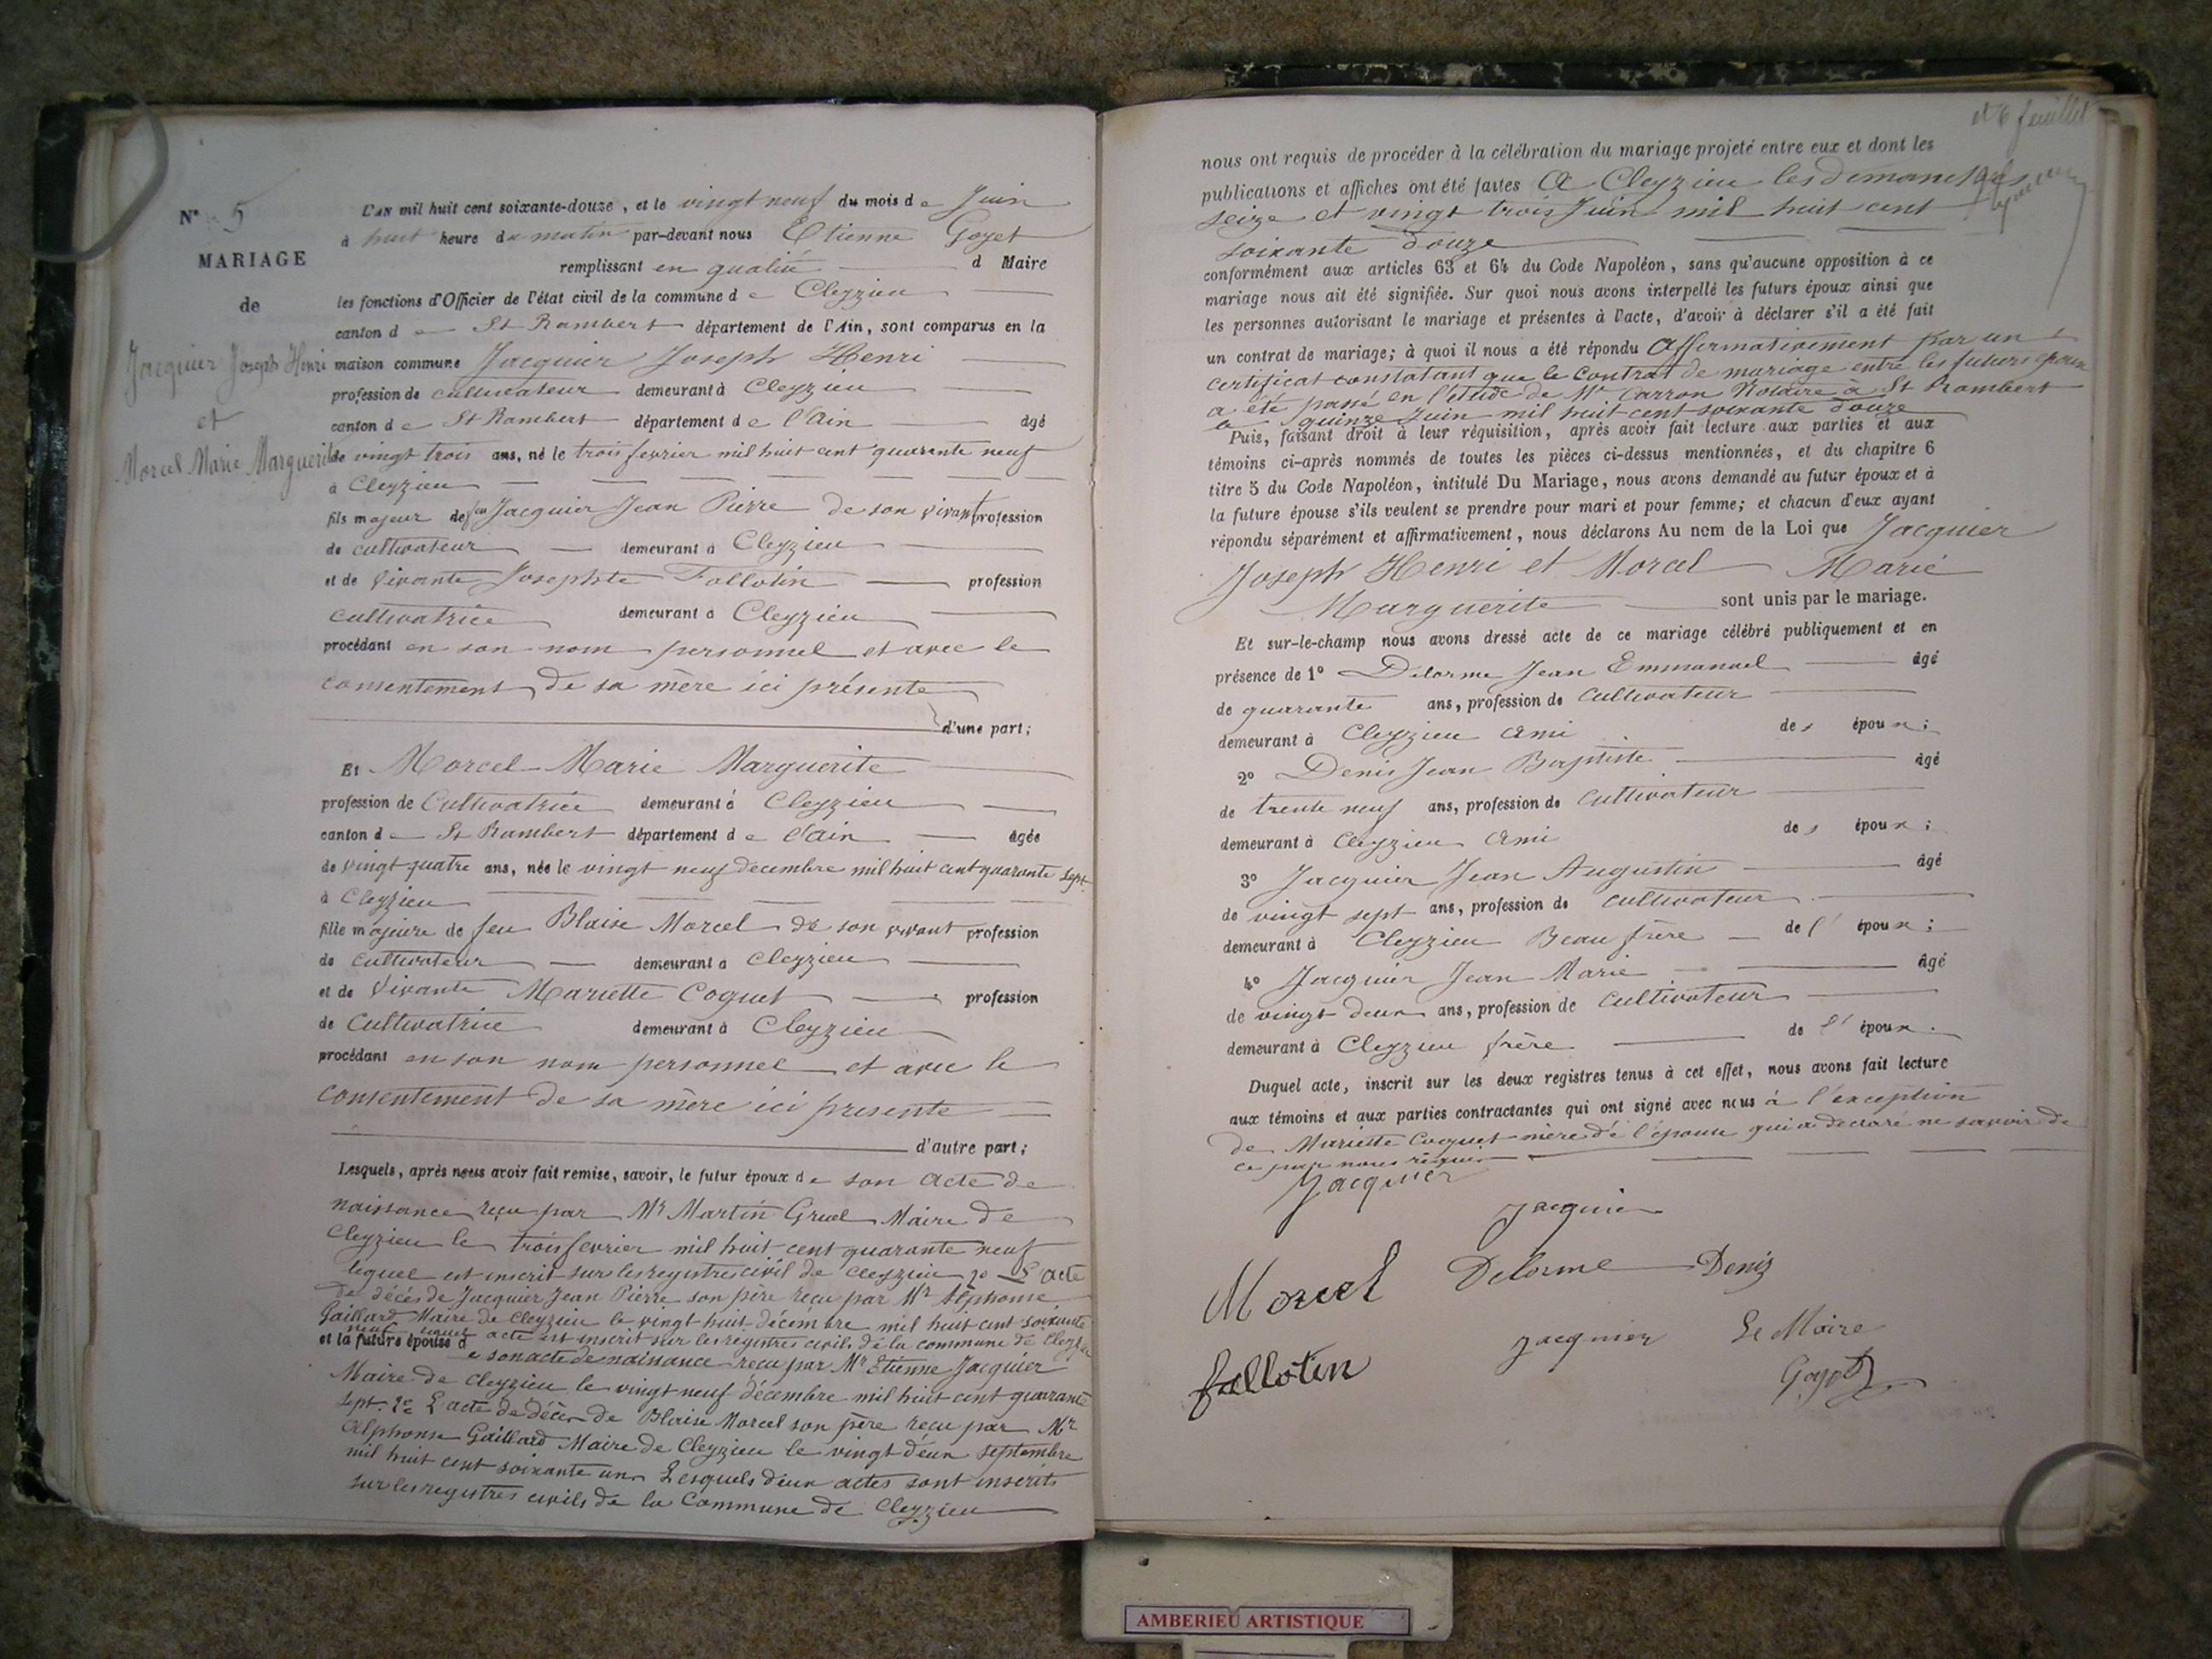 N° 5
MARIAGE
de
Jacquier Joseph Henri
et
Morcel Marie Marguerite
L'AN mil huit cent soixante-douze, et le vingt neuf du mois de Juin
à huit heure du matin par-devant nous Etienne Goyet
remplissant en qualité d Maire
les fonctions d'Officier de l'état civil de la commune de Cleyzieu
canton de St Rambert département de l'Ain, sont comparus en la
maison commune Jacquier Joseph Henri
profession de cultivateur demeurant à Cleyzieu
canton de St Rambert département de l'Ain âgé
de vingt trois ans, né le trois fevrier mil huit cent quarante neuf
à Cleyzieu
fils majeur de feu Jacquier Jean Pierre de son vivant profession
de cultivateur demeurant à Cleyzieu
et de vivante Josephte Fallotin profession
cultivatrice demeurant à Cleyzieu
procédant en son nom personnel et avec le
consentement de sa mère ici présente
d'une part;
Et Morcel Marie Marguerite
profession de Cultivatrice demeurant à Cleyzieu
canton de St Rambert département de l'Ain âgée
de vingt quatre ans, née le vingt neuf decembre mil huit cent quarante sept
à Cleyzieu
fille majeure de feu Blaise Morcel de son vivant profession
de cultivateur demeurant à Cleyzieu
et de vivante Mariette Coquet profession
de Cultivatrice demeurant à Cleyzieu
procédant en son nom personnel et avec le
consentement de sa mère ici presente
d'autre part;
Lesquels, après nous avoir fait remise, savoir, le futur époux de son acte de
naissance reçu par Mr Martin Gruel Maire de
Cleyzieu le trois fevrier mil huit cent quarante neuf
lequel est inscrit sur les registres civil de Cleyzieu 2o L'acte
de décès de Jacquier Jean Pierre son père reçu par Mr Alphonse
Gaillard Maire de Cleyzieu le vingt huit décembre mil huit cent soixante
neuf lequel acte est inscrit sur les registres civils de la commune de Cleyzieu
et la future épouse d
e son acte de naissance reçu par Mr Etienne Jacquier
Maire de Cleyzieu le vingt neuf décembre mil huit cent quarante
sept. 2o L'acte de décès de Blaise Morcel son père reçu par Mr
Alphonse Gaillard Maire de Cleyzieu le vingt deux septembre
mil huit cent soixante un Lesquels deux actes sont inscrits
sur les registres civils de la Commune de Cleyzieu
6 feuillet
nous ont requis de procéder à la célébration du mariage projeté entre eux et dont les
publications et affiches ont été faites A Cleyzieu les dimanches
seize et vingt trois Juin mil huit cent
soixante douze
conformément aux articles 63 et 64 du Code Napoléon, sans qu'aucune opposition à ce
mariage nous ait été signifiée. Sur quoi nous avons interpellé les futurs époux ainsi que
les personnes autorisant le mariage et présentes à l'acte, d'avoir à déclarer s'il a été fait
un contrat de mariage; à quoi il nous a été répondu affirmativement par un
certificat constatant que le Contrat de mariage entre les futurs époux
a été passé en l'étude de Mr Carron Notaire à St Rambert
le quinze Juin mil huit cent soixante douze
Puis, faisant droit à leur réquisition, après avoir fait lecture aux parties et aux
témoins ci-après nommés de toutes les pièces ci-dessus mentionnées, et du chapitre 6
titre 5 du Code Napoléon, intitulé Du Mariage, nous avons demandé au futur époux et à
la future épouse s'ils veulent se prendre pour mari et pour femme; et chacun d'eux ayant
répondu séparément et affirmativement, nous déclarons Au nom de la Loi que Jacquier
Joseph Henri et Morcel Marie
Marguerite sont unis par le mariage.
Et sur-le-champ nous avons dressé acte de ce mariage célébré publiquement et en
présence de 1° Delorme Jean Emmanuel âgé
de quarante ans, profession de Cultivateur
demeurant à Cleyzieu ami des époux;
2° Denis Jean Baptiste âgé
de trente neuf ans, profession de Cultivateur
demeurant à Cleyzieu ami des époux;
3° Jacquier Jean Augustin âgé
de vingt sept ans, profession de cultivateur
demeurant à Cleyzieu Beau frère de l'époux;
4° Jacquier Jean Marie âgé
de vingt deux ans, profession de Cultivateur
demeurant à Cleyzieu frère de l'époux.
Duquel acte, inscrit sur les deux registres tenus à cet effet, nous avons fait lecture
aux témoins et aux parties contractantes qui ont signé avec nous à l'exception
de Mariette Coquet mère de l'épouse qui a declaré ne savoir de
ce par nous requis
Jacquier
Jacquier
Morcel Delorme Deniz
Jacquier Le Maire
fallotin Goyet
AMBERIEU ARTISTIQUE